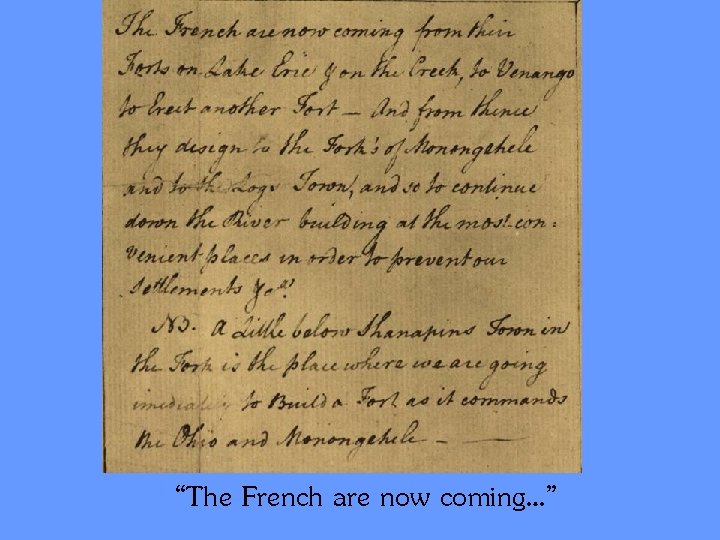 The French are now coming from their
Forts on Lake Erie & on the Creek, to Venango
to Erect another Fort — And from thence
they design to the Fork's of Monongehele
and to the Logs Town, and so to continue
down the River building at the most con=
venient places in order to prevent our
Settlements &ca.
NB. A Little below Shanapins Town in
the Fork is the place where we are going
imediately to Build a Fort as it commands
the Ohio and Monongehele —
“The French are now coming...”